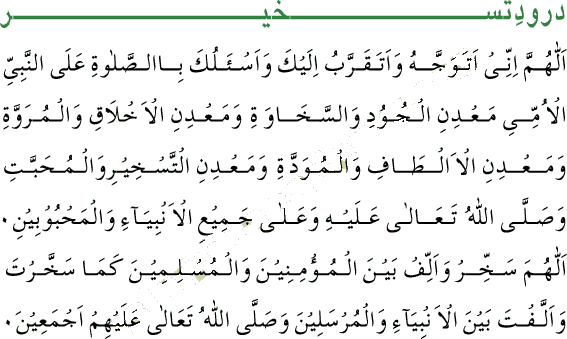 درودِ تسخیر
اَللّٰهُمَّ اِنِّیْ اَتَوَجَّهُ وَاَتَقَرَّبُ اِلَیْكَ وَاَسْئَلُكَ بِاالصَّلٰوةِ عَلَی النَّبِیِّ
الْاُمِّیِ مَعْدِنِ الْجُوْدِ وَالسَّخَاوَةِ وَمَعْدِنِ الْاَخْلَاقِ وَالْمُرَوَّةِ
وَمَعْدِنِ الْاَلْطَافِ وَالْمُوَدَّةِ وَمَعْدِنِ التَّسْخِیْرِوَالْمُحَبَّتِ
وَصَلَّی اللهُ تَعَالٰی عَلَیْهِ وَعَلٰی جَمِیْعِ الْاَنْبِیَآءِ وَالْمَحْبُوْبِیْنِ۰
اَللّٰهُمَ سَخِّرُ وَاَلِّفُ بَیْنَ الْمُؤْمِنِیْنَ وَالْمُسْلِمِیْنَ كَمَا سَخَّرْتَ
وَاَلَّفْتَ بَیْنَ الْاَنْبِیَآءِ وَالْمُرْسَلِیْنَ وَصَلَّی اللهُ تَعَالٰی عَلَیْهِمْ اَجْمَعِیْنَ۰